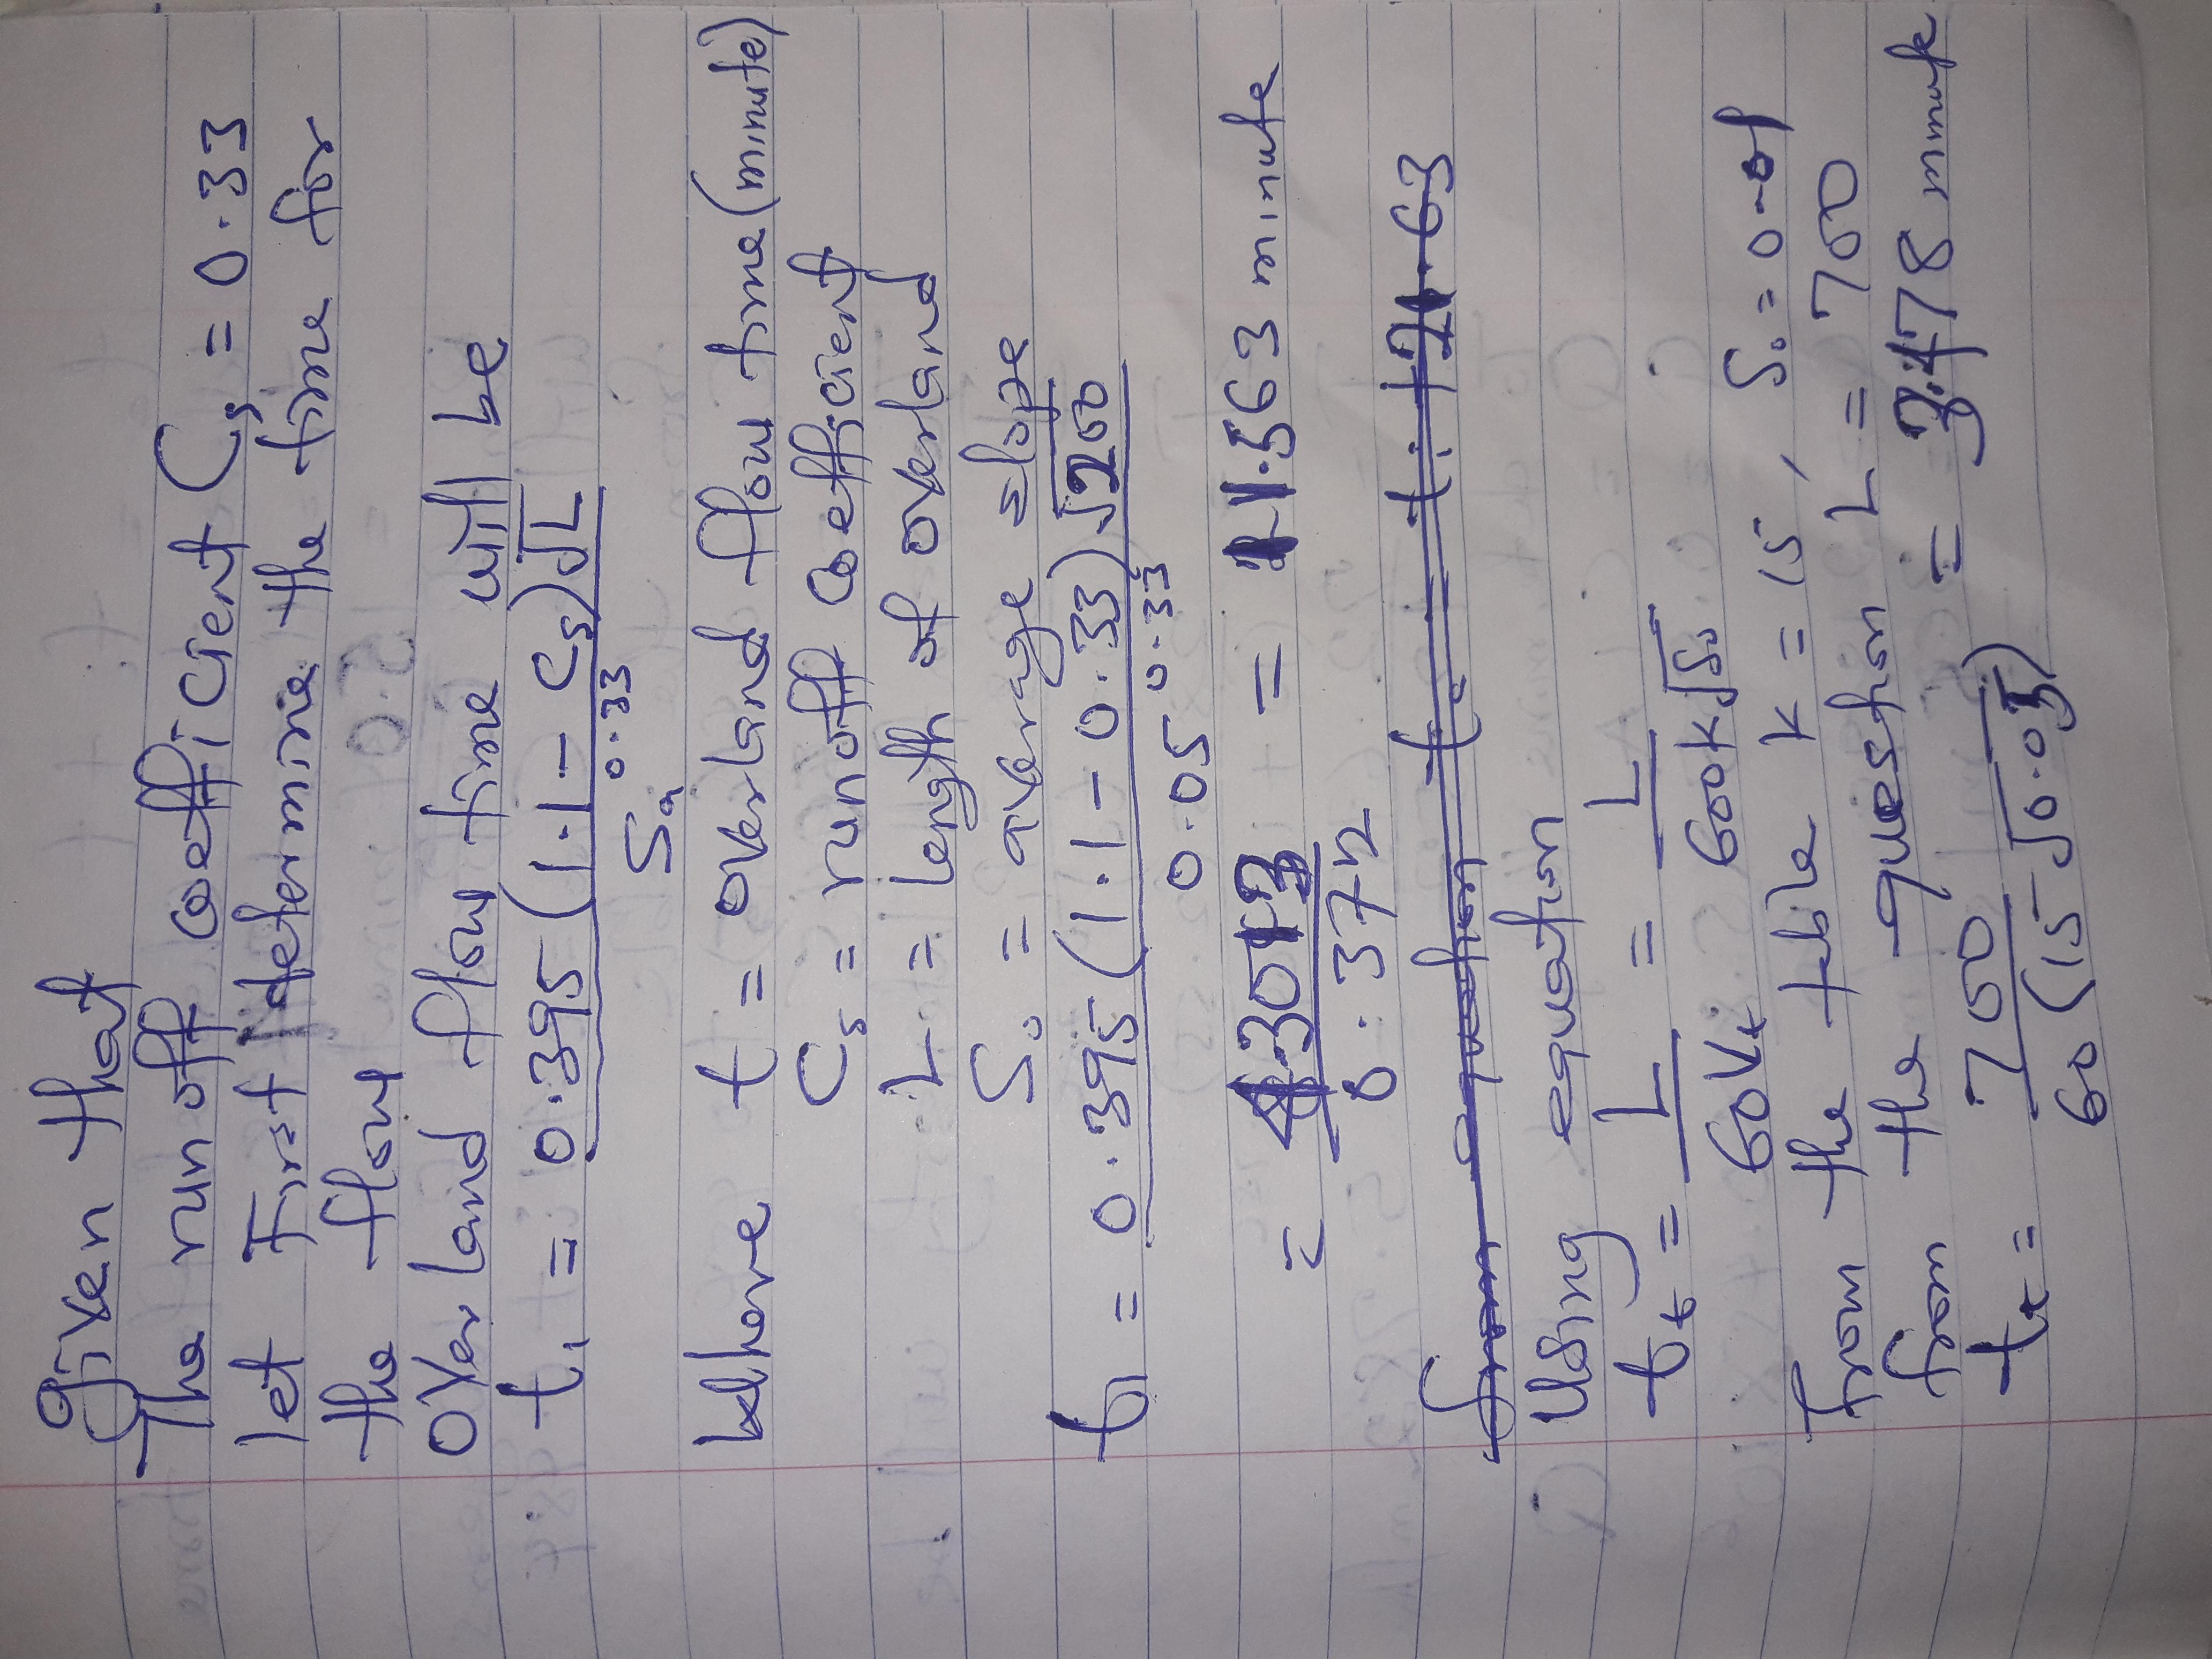 given that
The runoff coefficient Cs = 0.33
let First determine the time for
the flow
over land flow time will be
t₁ = 0.395 (1.1 - Cs)√L
S₀^0.33
where t = overland flow time (minute)
Cs = runoff coefficient
L = length of overland
S₀ = average slope
t₁ = 0.395 (1.1 - 0.33)√200
0.05^0.33
= 4.3013 = 11.563 minute
0.372
Using equation
t_t = L = L
60V_t 60k√S₀
From the table k = 15, S₀ = 0.01
from the question L = 700
t_t = 700 = 3.478 minute
60 (15 √0.05)